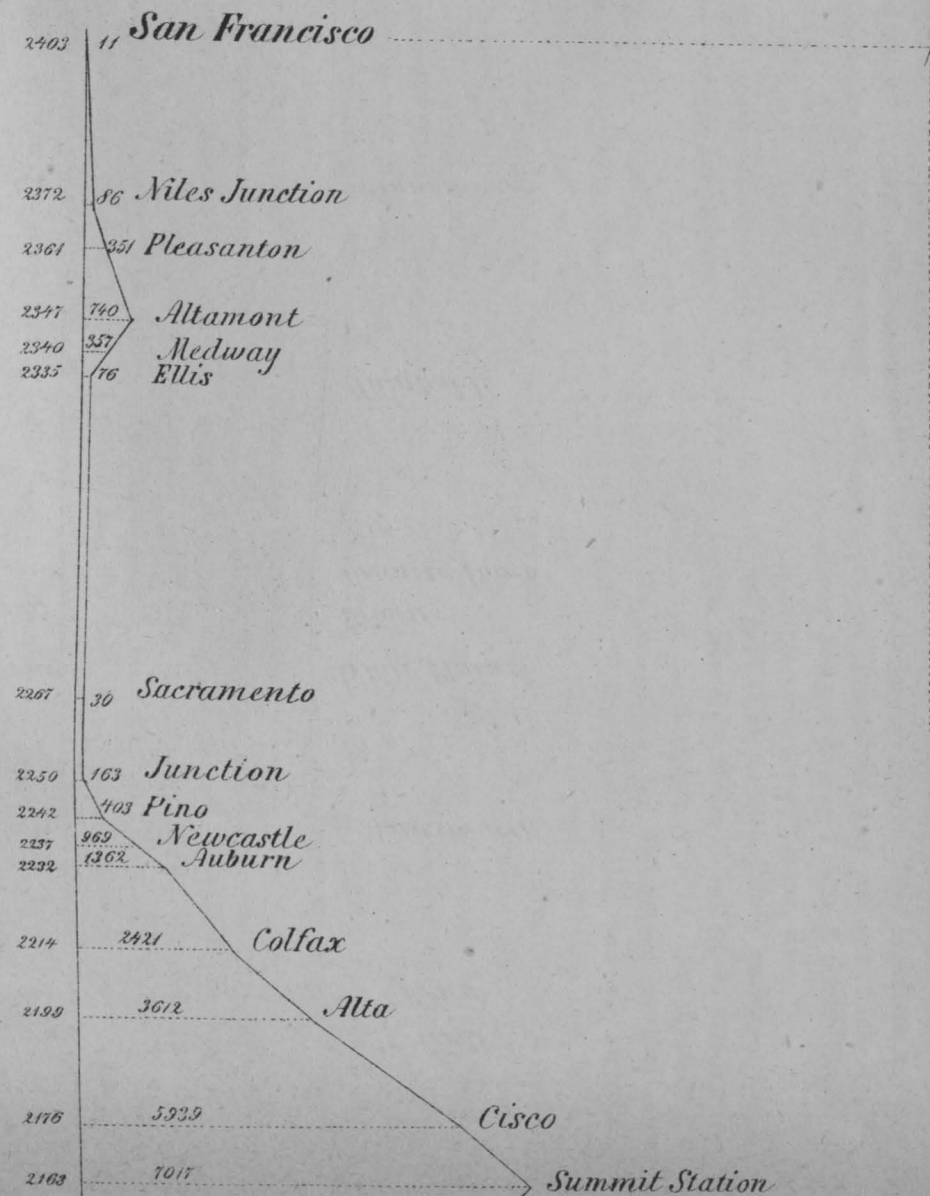 2403 11 San Francisco
2372 86 Niles Junction
2361 351 Pleasanton
2347 740 Altamont
2340 357 Medway
2335 76 Ellis
2267 30 Sacramento
2250 163 Junction
2242 403 Pino
2237 969 Newcastle
2232 1362 Auburn
2214 2421 Colfax
2199 3612 Alta
2176 5939 Cisco
2163 7017 Summit Station